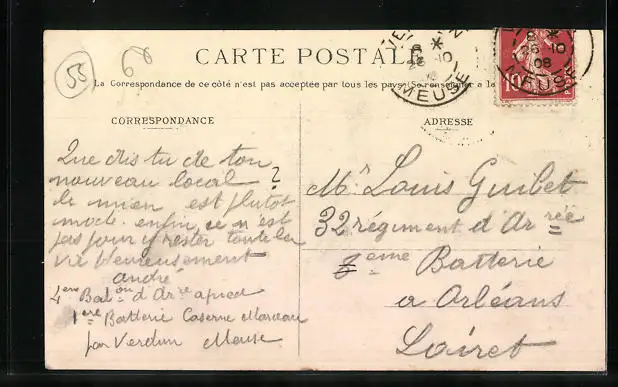 55
68
CARTE POSTALE
La Correspondance de ce côté n'est pas acceptée par tous les pays (Se renseigner à la
CORRESPONDANCE
Que dis tu de ton
nouveau local ?
le mien est plutot
moche enfin ce n'est
pas pour y rester toute la
vie heureusement
andré
4eme Baton d'Arrie a pied
1ere Batterie Caserne Marceau
par Verdun Meuse
ADRESSE
Mr Louis Guibet
32 régiment d'Arrée
8eme Batterie
a Orléans
Loiret
26 -10
08
MEUSE
10
26 -10
08
MEUSE